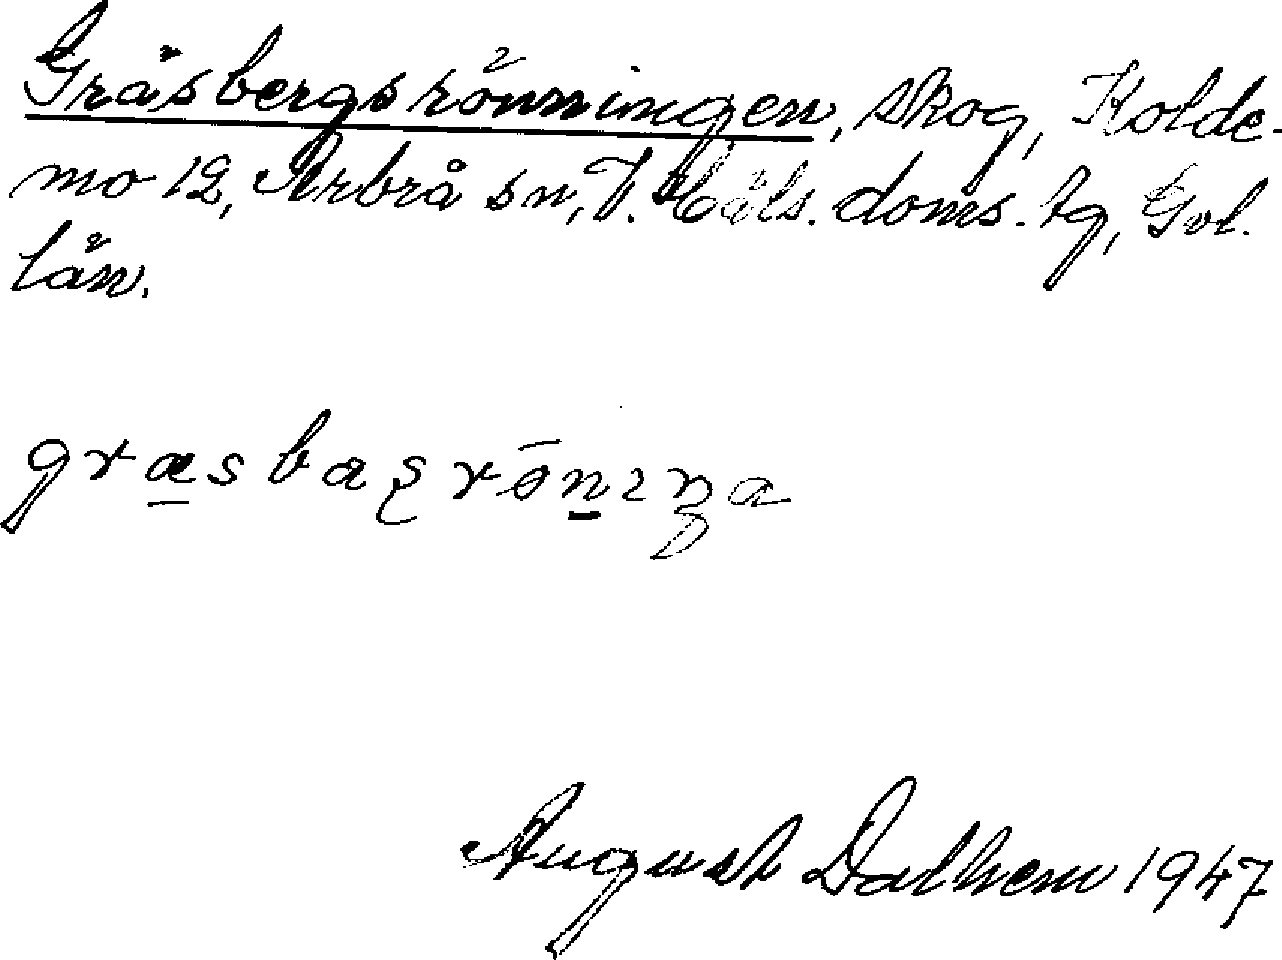 Gräsbergsrönningen, skog, Kolde-
mo 12, Arbrå sn, V. Häls. doms. tg, Gvl.
län.
August Dalhem 1947